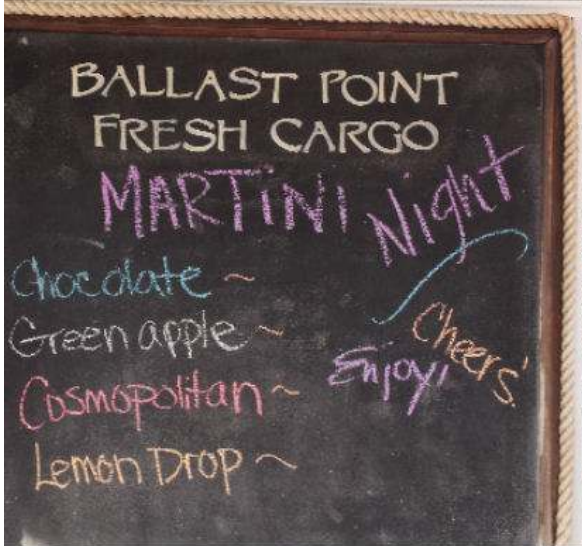 BALLAST POINT
FRESH CARGO
MARTiNi Night
Chocolate ~
Green apple ~
Cosmopolitan ~
Lemon Drop ~
Cheers!
Enjoy!